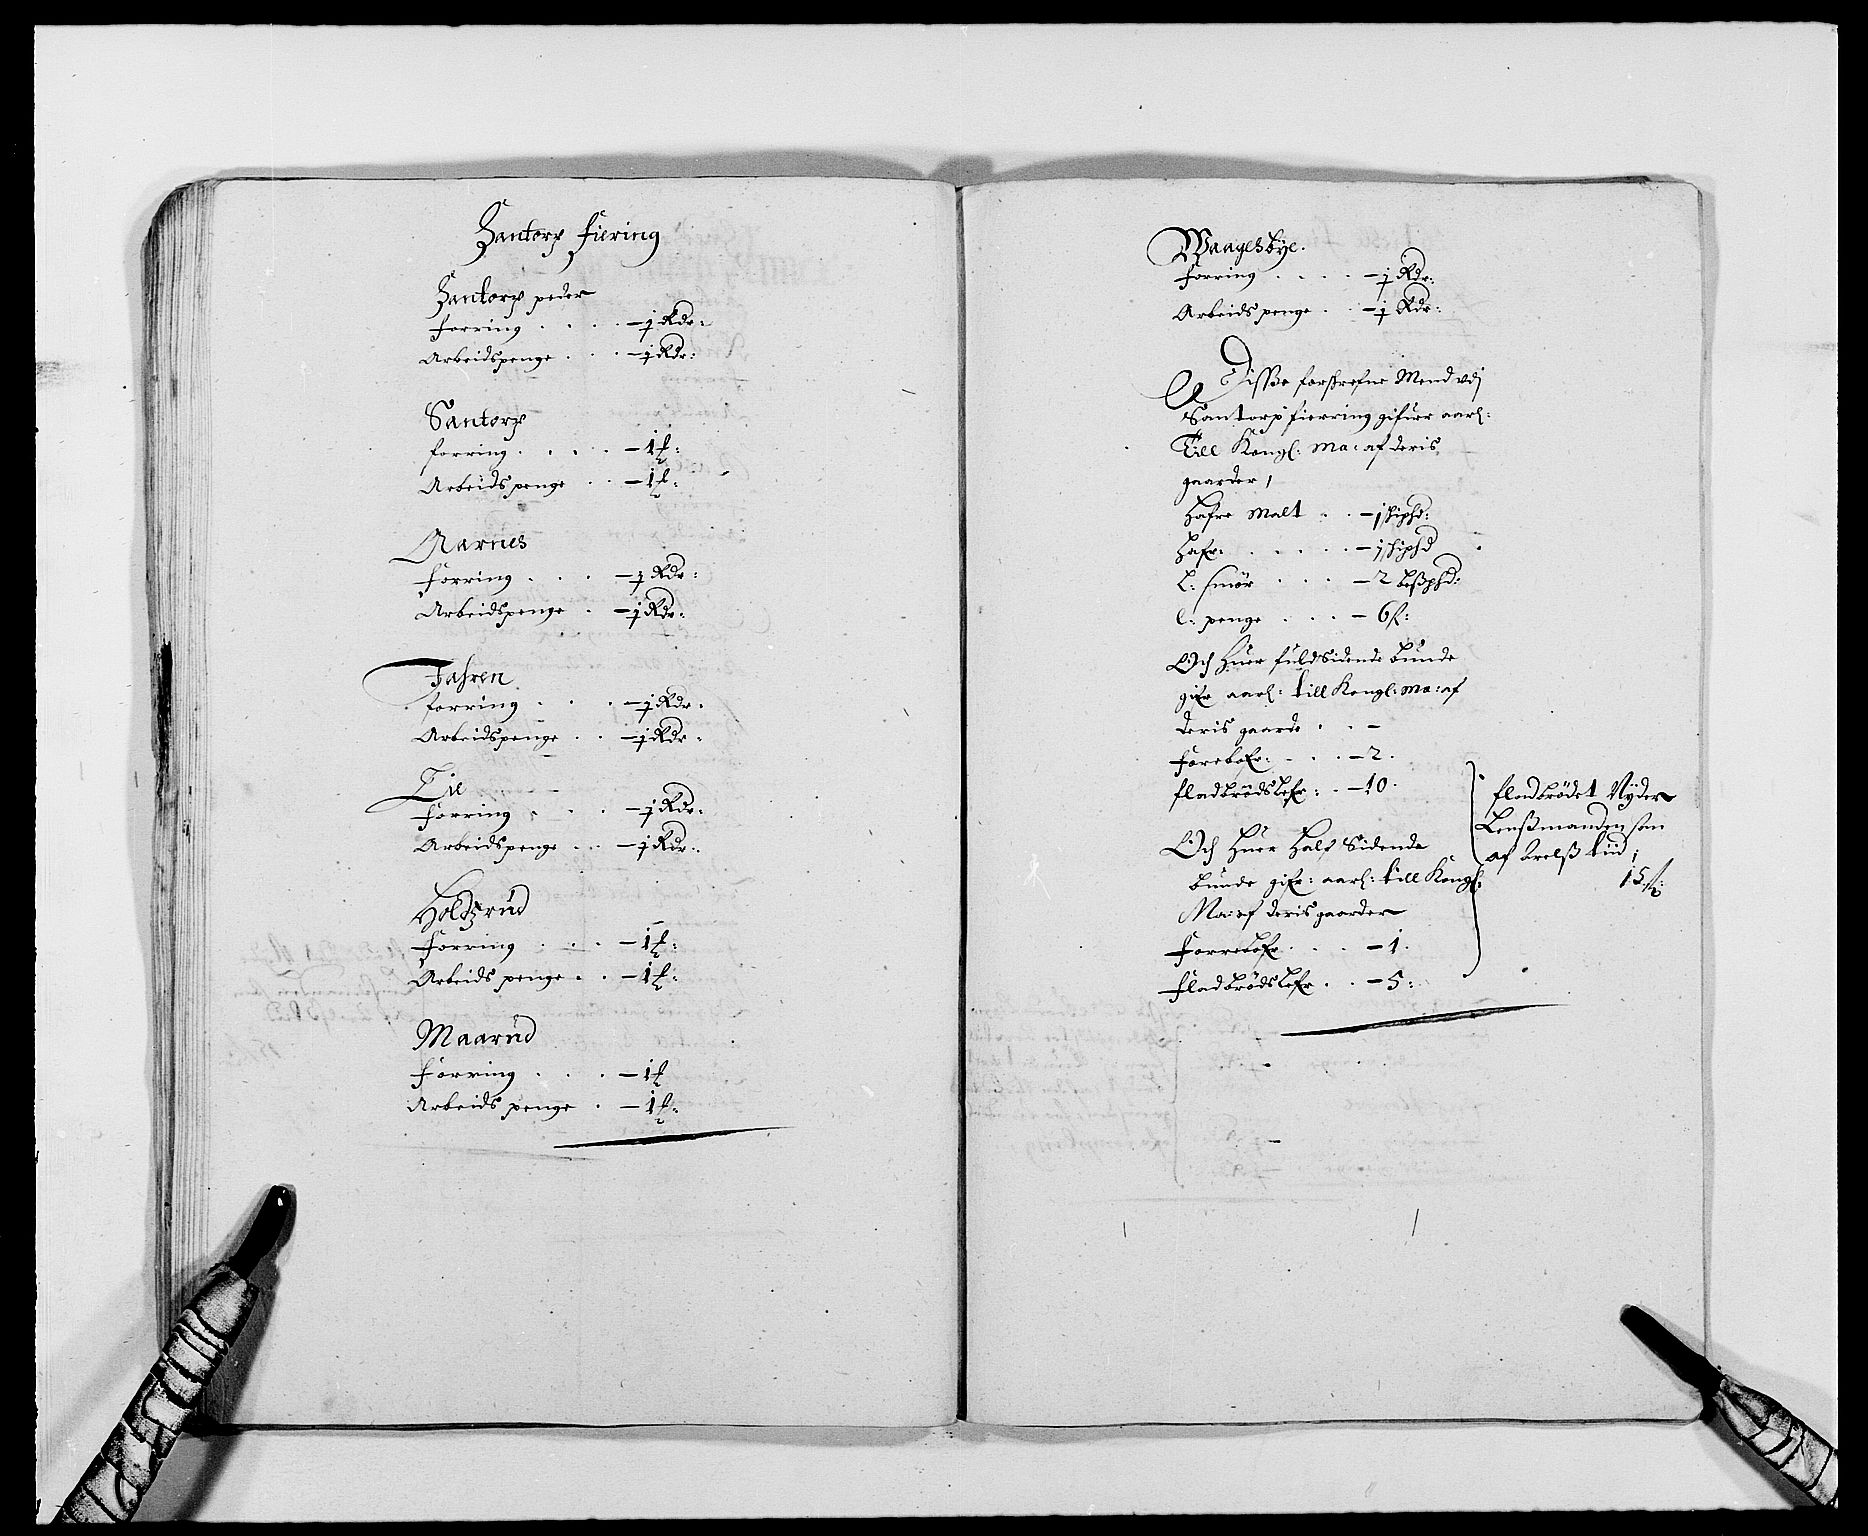 Santorp fiering
Santorp peder
forring . . . . – j Rdr:
Arbeidspenge . . . – j Rdr:
Santorp
forring . . . . – 1 f:
Arbeidspenge . . – 1 f:
Aarnes
forring . . . – j Rdr:
Arbeidspenge . – j Rdr:
Fahren
forring . . . . – j Rdr:
Arbeidspenge . . – j Rdr:
Tie
forring . . . – j Rdr:
Arbeidspenge . . – j Rdr:
Holdtzrud
forring . . . – 1 f:
Arbeids penge . . – 1 f:
Maarud
forring . . . – 1 f
Arbeids penge . – 1 f:
Waagesbye.
forring . . . . – j Rdr:
Arbeids penge . . – j Rdr:
Disse forskrefne Mend vdj
Santorp fierring gifuer aarl:
Till Kongl: Ma: af deris
gaarder,
Hafre malt . . – j skiphd:
Hafr: . . . . . – j skiphd
L: smør . . . – 2 bessphd:
l: penge . . . – 6 f:
Och huer fuldsidende bunde
gifr aarl: till Kongl: Ma: af
deris gaarde . . –
forrelefr: . . . – 2.
fladbrødslefr: . – 10.
Och huer half sidende
bunde gifr: aarl: till Kongl:
Ma: af deris gaarder
forrelefr . . . – 1.
fladbrødslefr . . – 5:
fladbrødet Nyder
Lenssmanden som
af arelss tiid;
15 f: